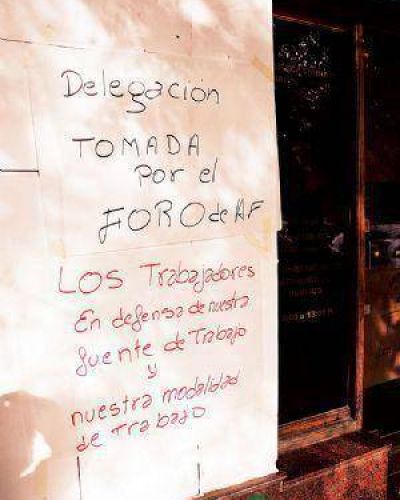 Delegación
TOMADA
Por el
FORO de AF
LOS Trabajadores
En defensa de nuestra
fuente de Trabajo
y
nuestra modalidad
de Trabajo